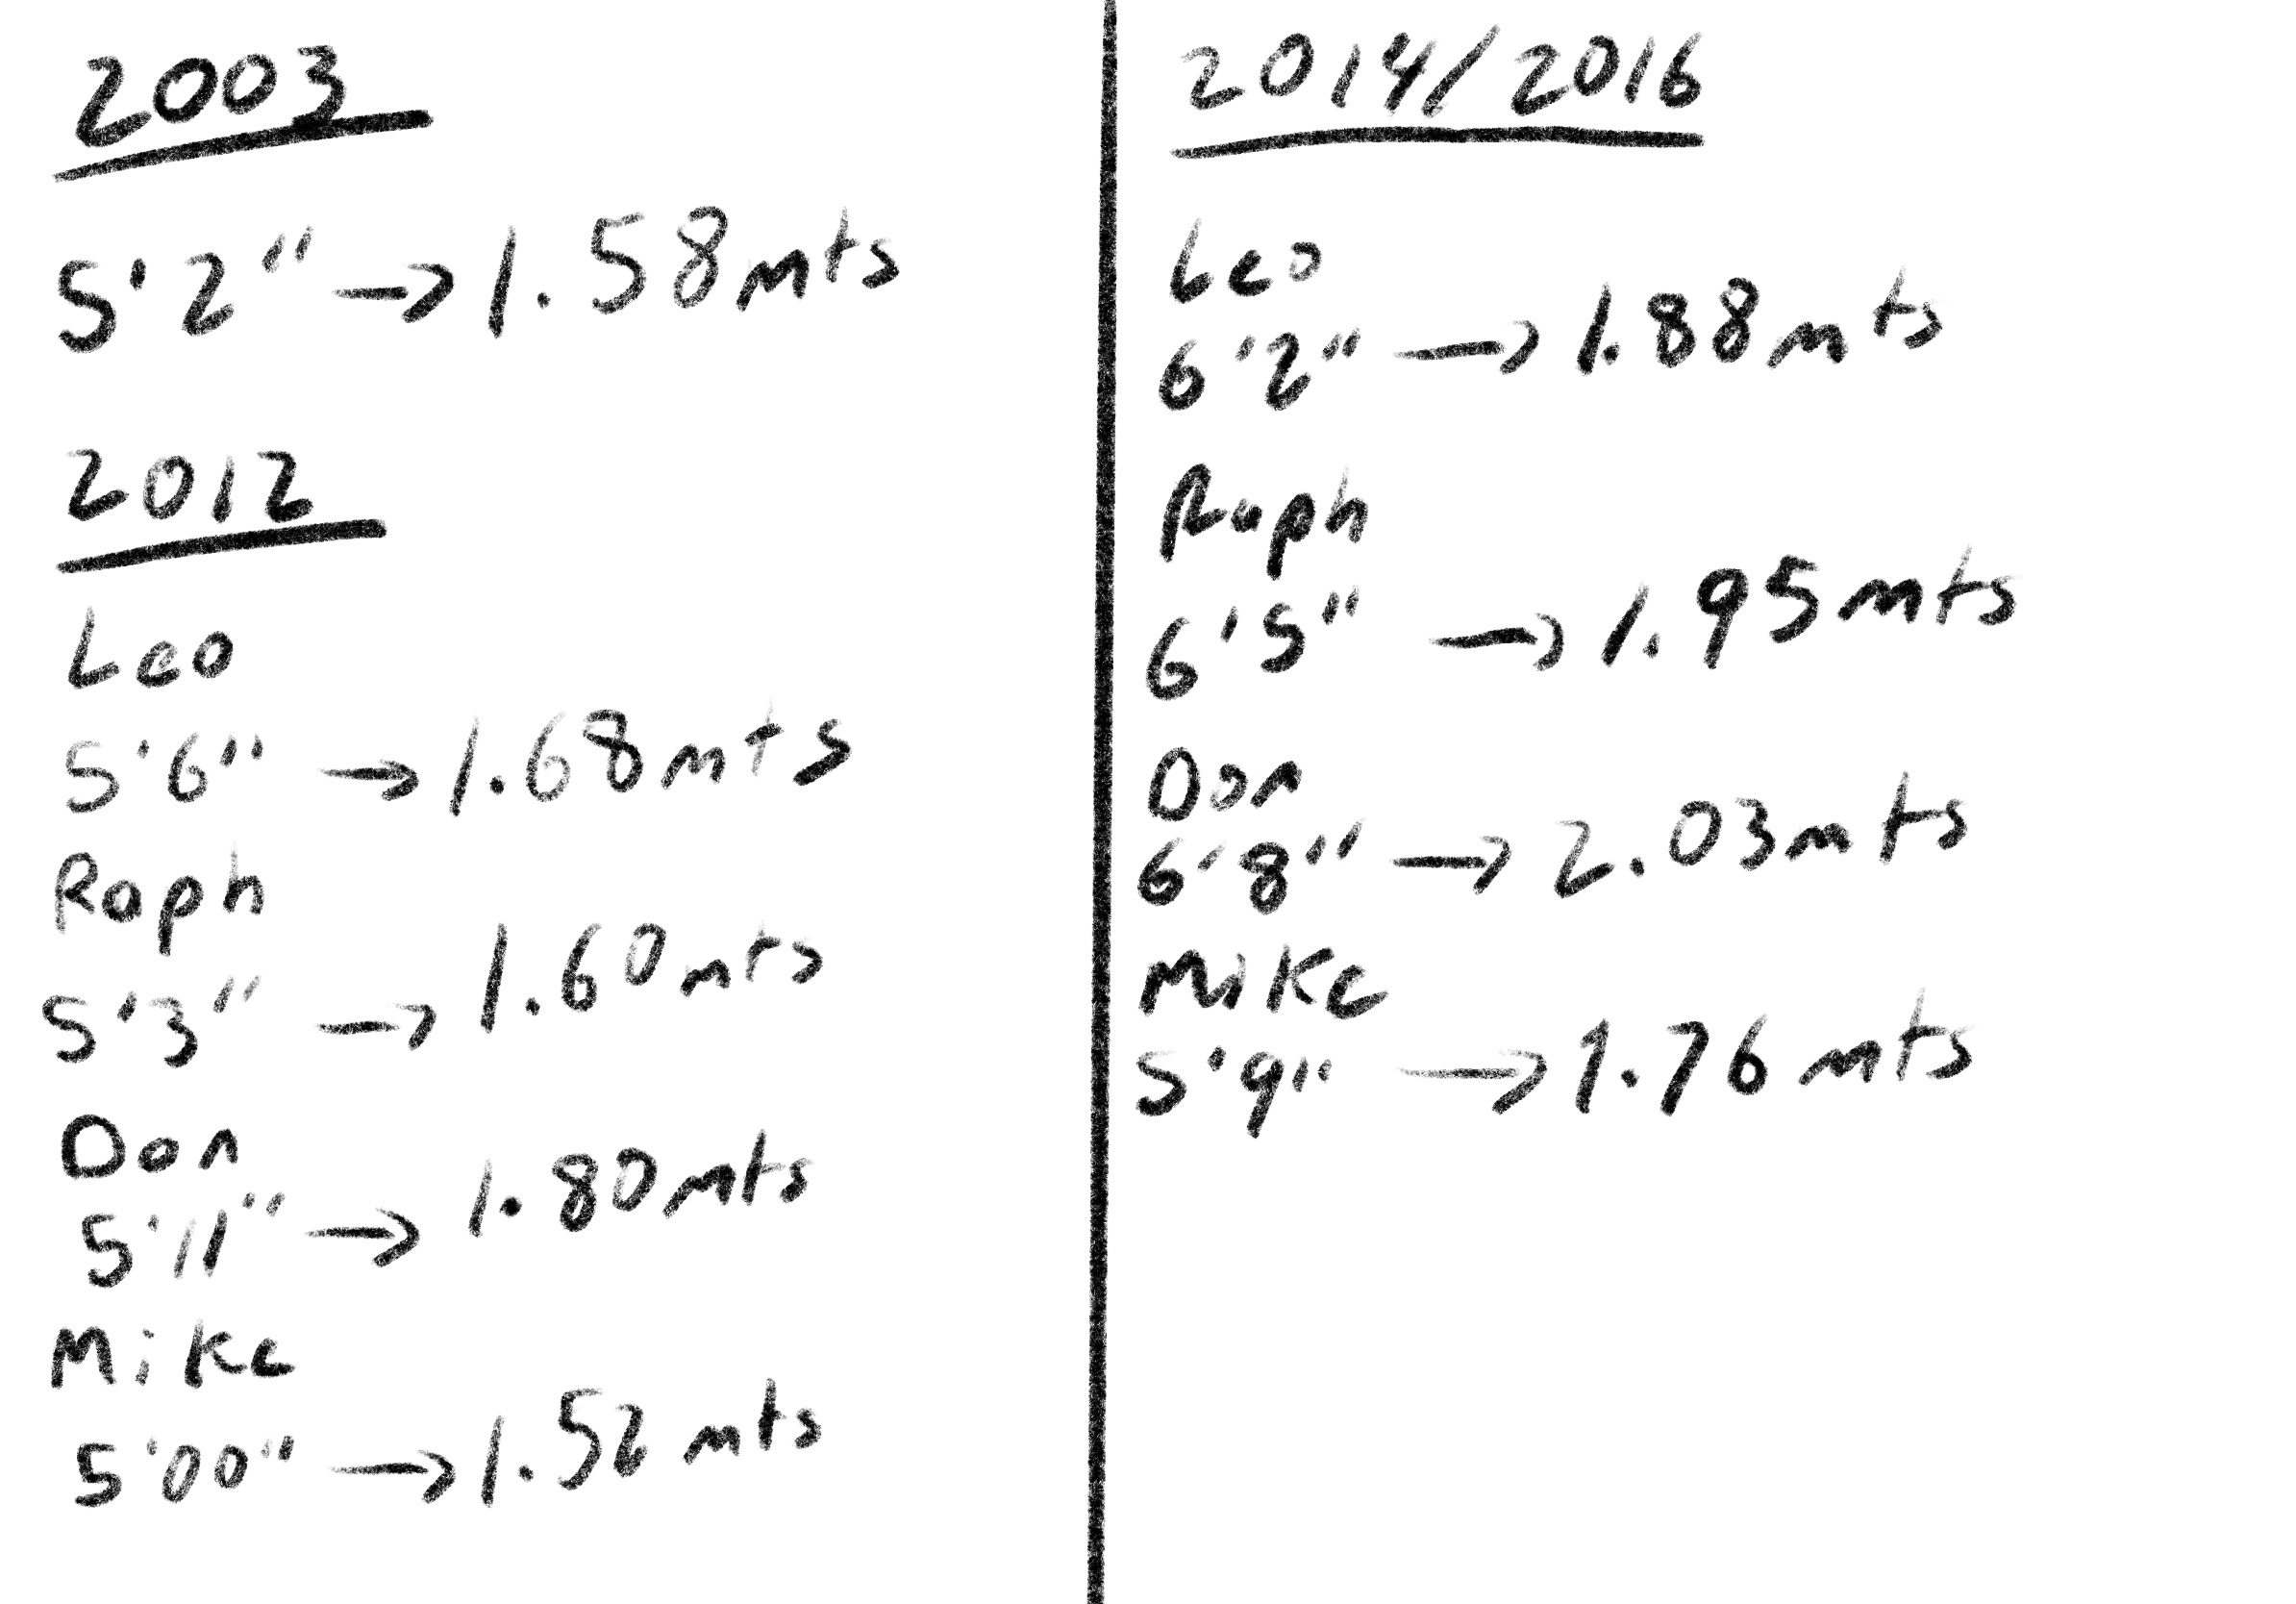 2003
5'2" → 1.58mts
2012
Leo
5'6" → 1.68mts
Raph
5'3" → 1.60mts
Don
5'11" → 1.80mts
Mike
5'00" → 1.52mts
2014/2016
Leo
6'2" → 1.88mts
Raph
6'5" → 1.95mts
Don
6'8" → 2.03mts
Mike
5'9" → 1.76mts